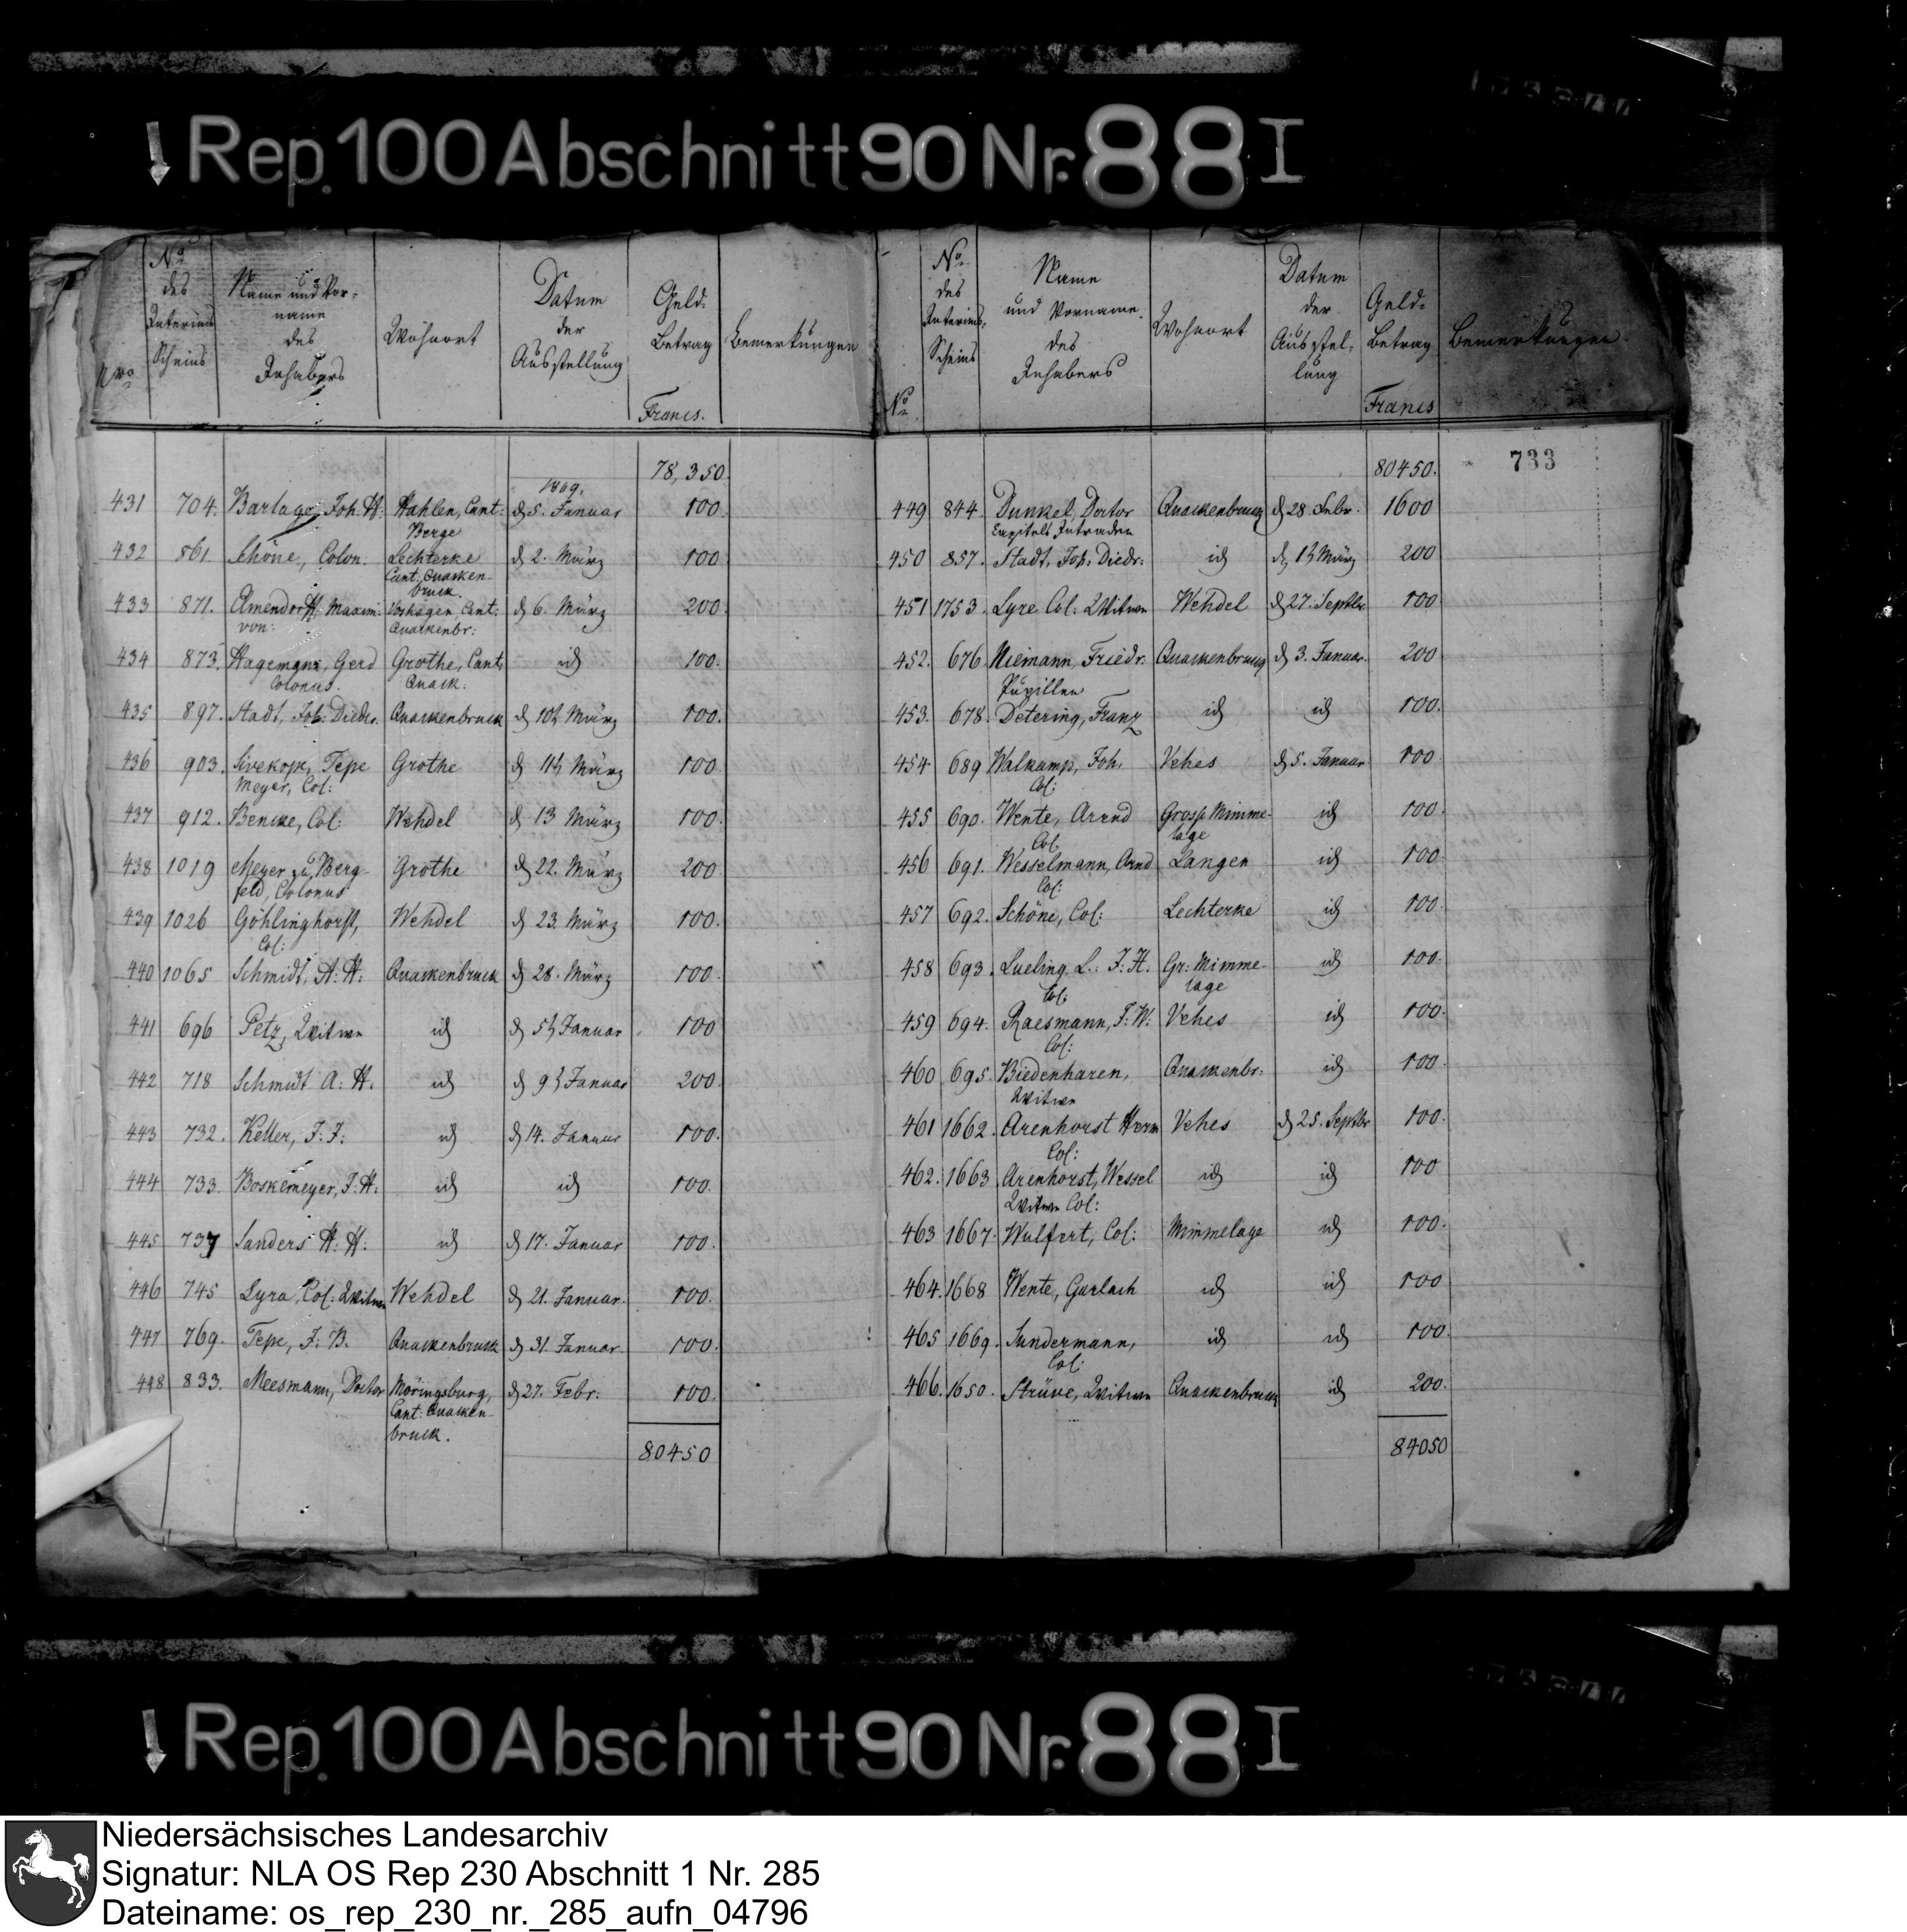 Rep. 100 Abschnitt 90 Nr. 88 I
Nro
No des Interims Scheins
Name und Vorname des Inhabers
Wohnort
Datum der Ausstellung
Geld-Betrag Francs.
Bemerkungen
78,350.
1809.
431 704. Bartage, Joh. H: Hahlen, Cant: d 5. Januar 100.
Berge
432 861 Schöne, Colon. Lechterke d 2. März 100.
Cant. Quacken-
bruck.
433 871. Elmendorff: Maxim: Vorhagen Cant: d 6. März 200.
von: Quackenbr:
434 873. Hagemann, Gerd Grothe, Cant. id 100.
Colonus. Quack:
435 897. Stadt, Joh: Diedr. Quackenbruck d 10t März 100.
436 903. Sivekope, Tepe Grothe d 11t März 100
Meyer, Col:
437 912. Bencke, Col: Wehdel d 13 März 100.
438 1019 Meyer zu Berg- Grothe d 22. März 200
feld, Colonus
439 1026 Göhlinghorst, Wehdel d 23. März 100.
Col:
440 1065 Schmidt, A: H: Quackenbruck d 28. März 100.
441 696 Petz, Witwe id d 5t Januar 100
442 718 Schmidt A: H. id d 9t Januar 200
443 732. Keller, J: J: id d 14. Januar 100.
444 733. Boskemeyer, J: H: id id 100.
445 737 Sanders H: H: id d 17. Januar 100.
446 745 Lyra, Col: Witwe Wehdel d 21. Januar. 100.
447 769. Tepe, J: B. Quackenbruck d 31. Januar. 100.
448 833. Meesmann, Doctor Moringsburg, d 27. Febr: 100.
Cant: Quacken-
bruck.
80450
No
No des Interims-Scheins
Name und Vorname. des Inhabers
Wohnort
Datum der Ausstellung
Geld-Betrag Francs
Bemerkungen
80450.
733
449 844. Dunkel, Doctor Quackenbruck d 28. Febr. 1600
Capitels Intraden
450 857. Stadt, Joh: Diedr: id d 1t März 200
451 1753. Lyre Col: Witwe Wehdel d 27. Septbr 100
452. 676 Niemann, Friedr: Quackenbruck d 3. Januar. 200
Pupillen
453. 678. Detering, Franz id id 100.
454 689 Walkamp, Joh. Vehes d 5. Januar 100
Col:
455 690. Wente, Arend Gross Mimme- id 100.
Col. lage
456 691. Wesselmann, Arnd Langen id 100.
Col:
457 692. Schöne, Col: Lechterke id 100.
458 693. Lueling L: J: H. Gr: Mimme- id 100.
Col: lage
459 694. Raesmann, J: W: Vehes id 100.
Col:
460 695. Biedenharen, Quackenbr: id 100.
Witwe
461 1662. Arenhorst Herm Vehes d 25. Septbr 100.
Col:
462. 1663 Arenhorst, Wessel id id 100
Witwe Col:
463 1667. Wulfert, Col: Mimmelage id 100.
464. 1668 Wente, Garlach id id 100
465 1669. Sundermann, id id 100.
Col:
466. 1650. Strüve, Witwe Quackenbruck id 200.
84050
Rep. 100 Abschnitt 90 Nr. 88 I
Niedersächsisches Landesarchiv
Signatur: NLA OS Rep 230 Abschnitt 1 Nr. 285
Dateiname: os_rep_230_nr._285_aufn_04796